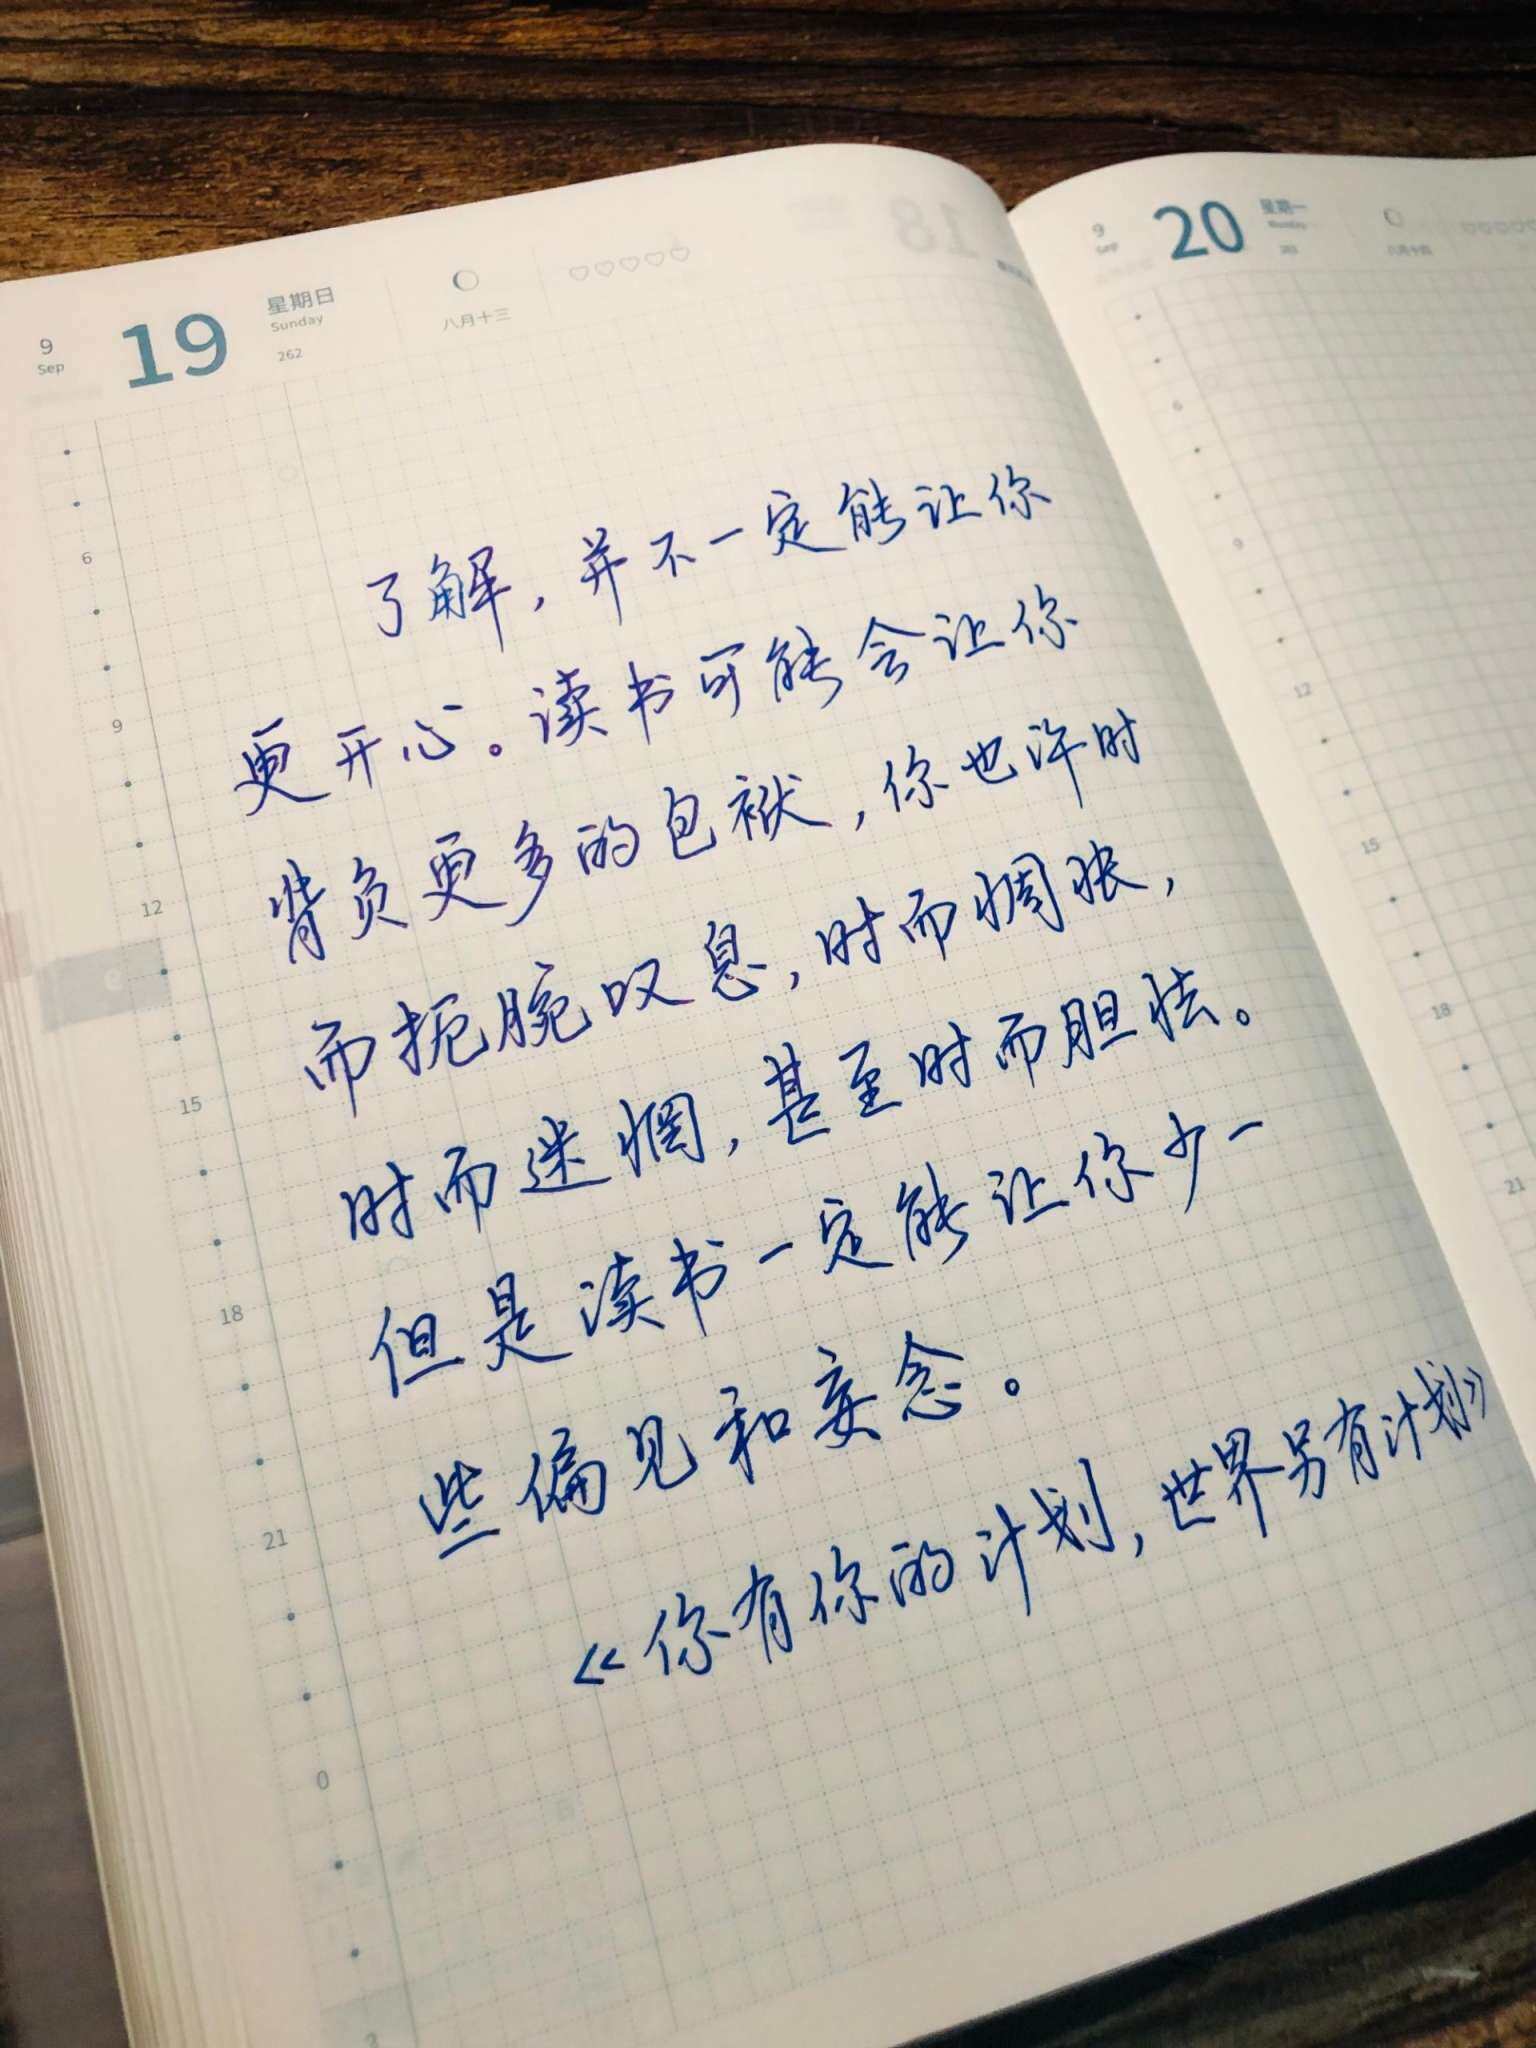 9
Sep
19
星期日
Sunday
262
八月十三
18
9
Sep
20
星期一
八月十四
了解，并不一定能让你
更开心。读书可能会让你
背负更多的包袱，你也许时
而扼腕叹息，时而惆怅，
时而迷惘，甚至时而胆怯。
但是读书一定能让你少一
些偏见和妄念。
《你有你的计划，世界另有计划》
6
9
12
15
18
21
0
3
6
9
12
15
18
21